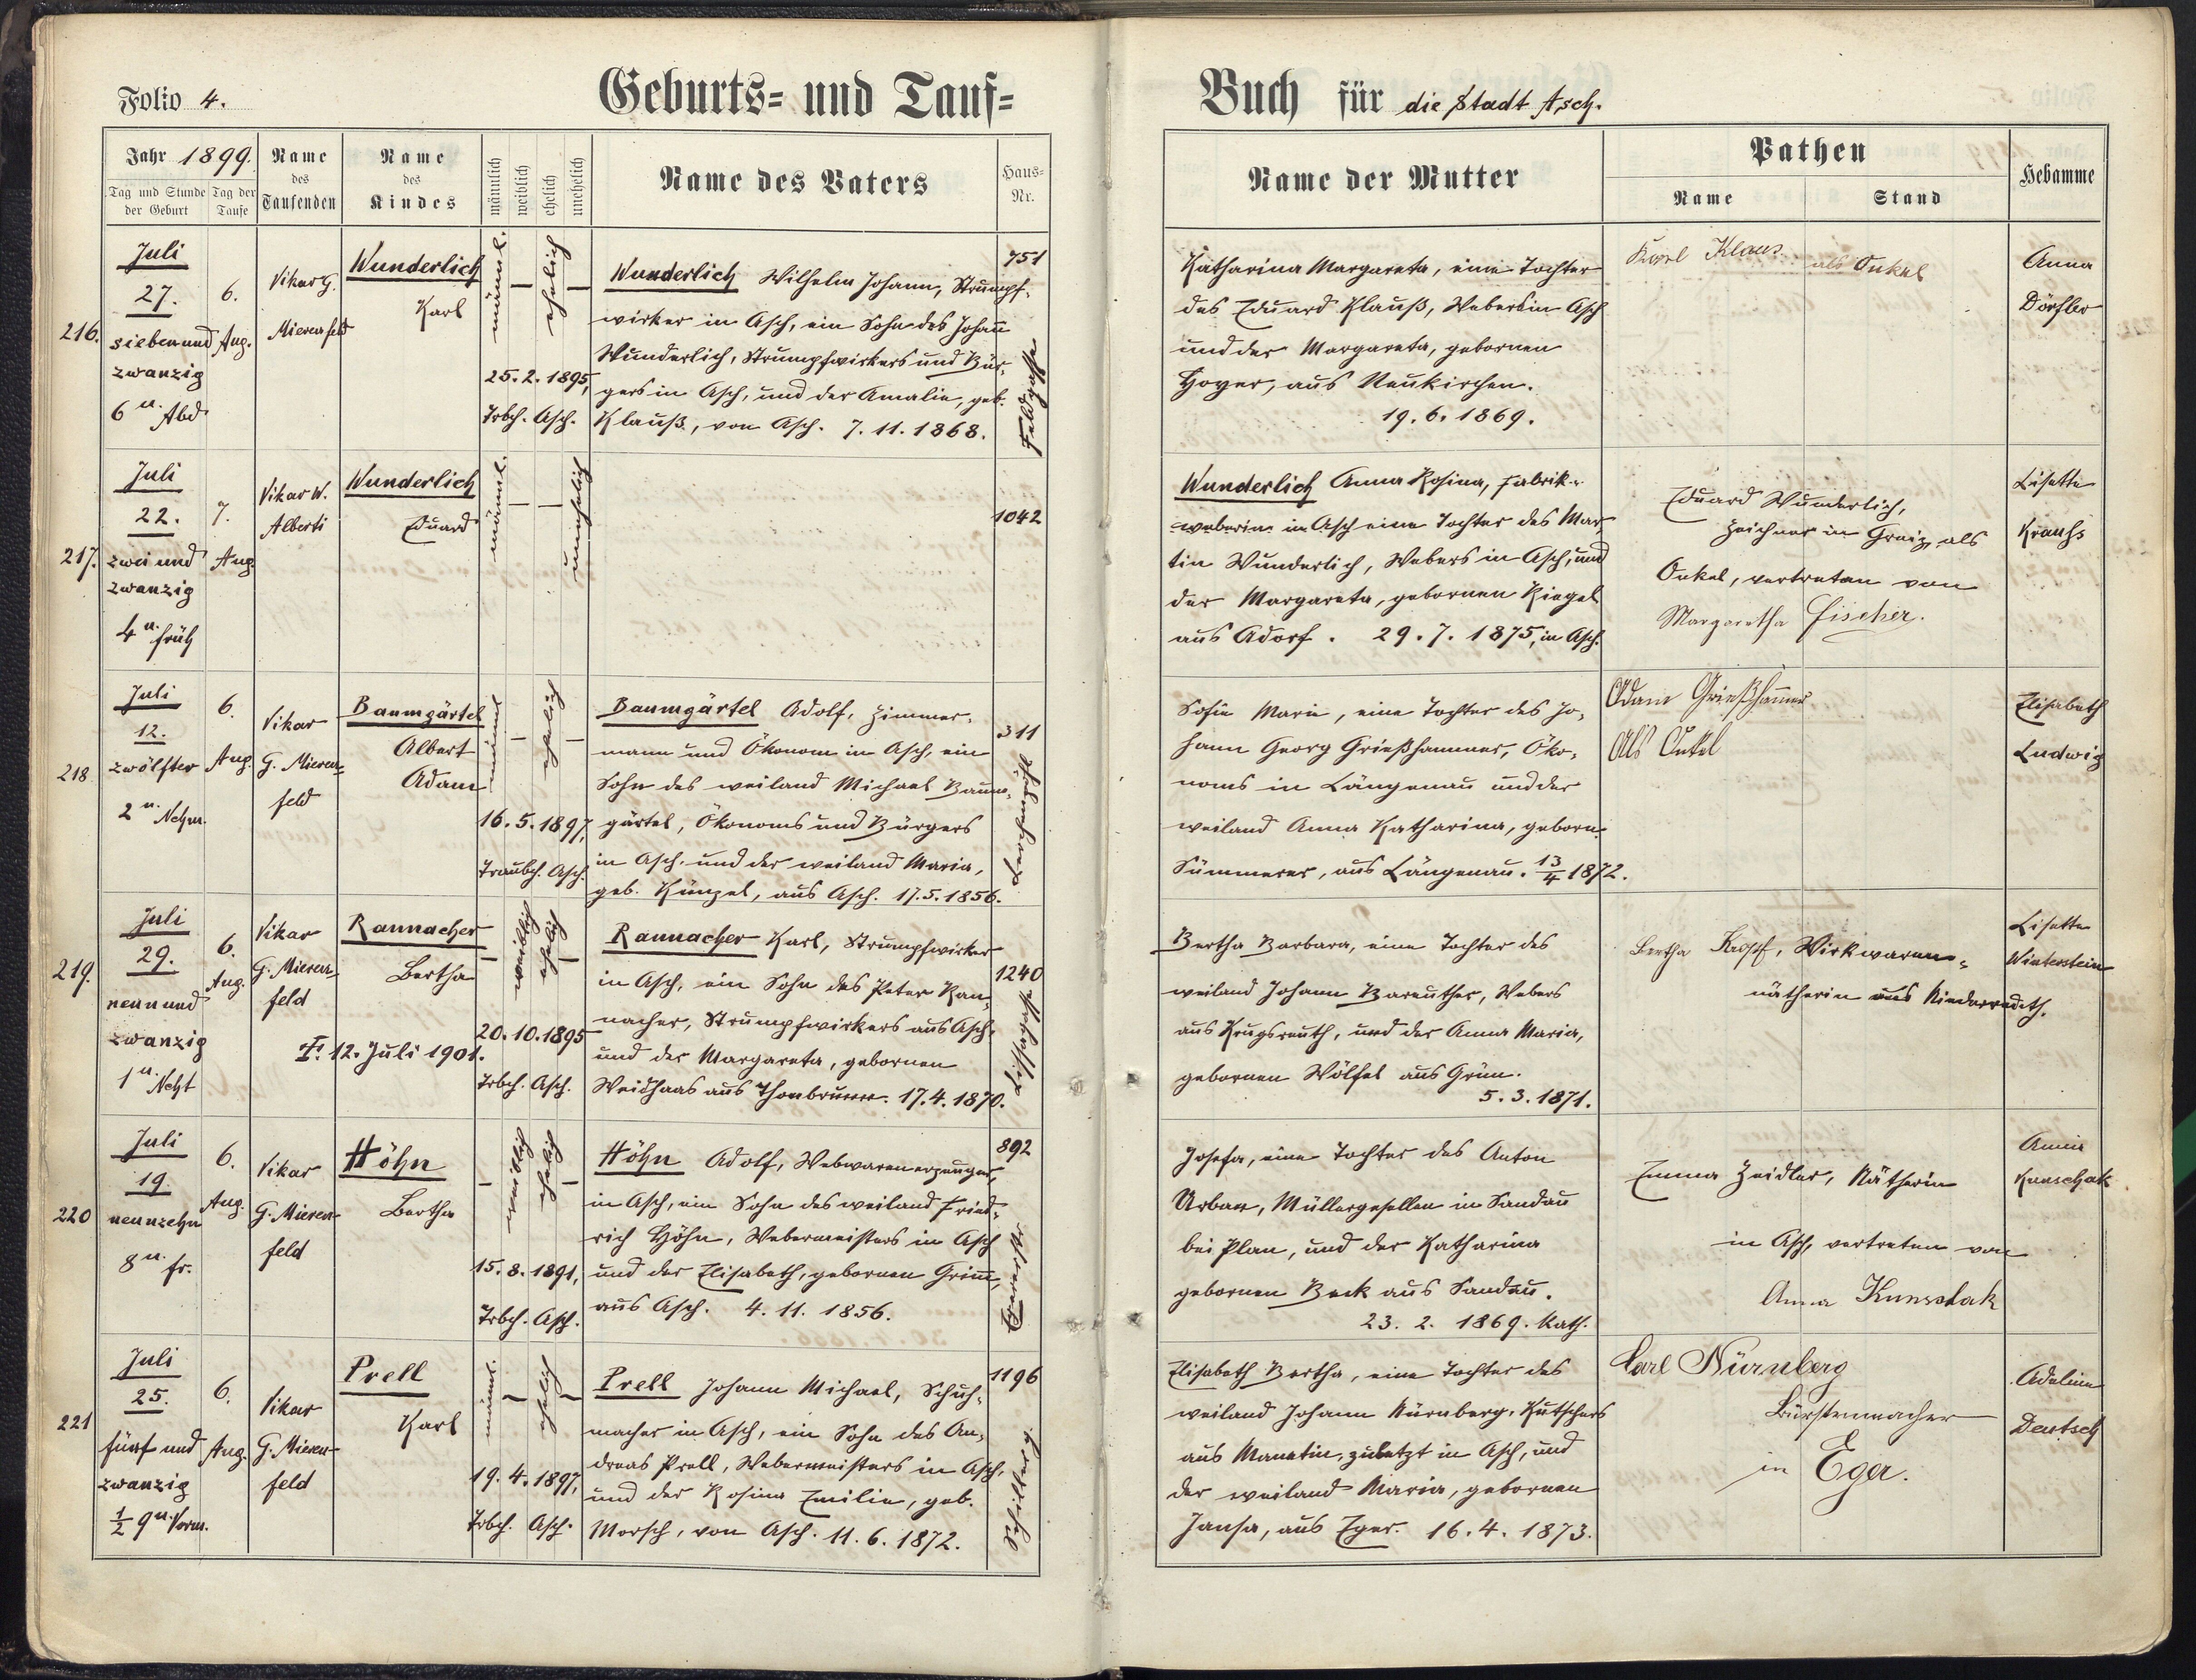 Folio 4.
Geburts= und Tauf=
Jahr 1899.
Tag und Stunde der Geburt
Tag der Taufe
Name des Taufenden
Name des Kindes
männlich
weiblich
ehelich
unehelich
Name des Vaters
Haus-Nr.
216.
Juli
27.
sieben und
zwanzig
6 u. Abd
6.
Aug.
Vikar G.
Mierenfeld
Wunderlich
Karl
männl.
—
ehelich
—
25. 2. 1895,
Trbch. Asch.
Wunderlich Wilhelm Johann, Strumpf-
wirker in Asch, ein Sohn des Johann
Wunderlich, Strumpfwirkers und Bür-
gers in Asch, und der Amalie, geb.
Klauß, von Asch. 7. 11. 1868.
751
Feldgasse
217.
Juli
22.
zwei und
zwanzig
4 u. früh
7.
Aug
Vikar W.
Alberti
Wunderlich
Eduard
männl.
—
—
unehelich
1042
218
Juli
12.
zwölfter
2 u. Nchm.
6.
Aug.
Vikar
G. Mieren-
feld
Baumgärtel
Albert
Adam
männl
—
ehelich
—
16. 5. 1897,
Traubch. Asch.
Baumgärtel Adolf, Zimmer-
mann und Ökonom in Asch, ein
Sohn des weiland Michael Baum-
gärtel, Ökonoms und Bürgers
in Asch. und der weiland Maria,
geb. Künzel, aus Asch. 17. 5. 1856.
311
Lerchenpöhl
219.
Juli
29.
neun und
zwanzig
1 u. Ncht
6.
Aug.
Vikar
G. Mieren-
feld
Rannacher
Bertha
†. 12. Juli 1901.
—
weiblich
ehelich
—
20. 10. 1895
Trbch. Asch.
Rannacher Karl, Strumpfwirker
in Asch, ein Sohn des Peter Ran-
nacher, Strumpfwirkers aus Asch,
und der Margareta, gebornen
Weidhaas aus Thonbrunn. 17. 4. 1870.
1240
220
Juli
19.
neunzehn
8 u. fr.
6.
Aug.
Vikar
G. Mieren-
feld
Höhn
Bertha
—
weiblich
ehelich
—
15. 8. 1891,
Trbch. Asch.
Höhn Adolf, Webwarenerzeuger,
in Asch, ein Sohn des weiland Fried-
rich Höhn, Webermeisters in Asch
und der Elisabeth, gebornen Grimm,
aus Asch. 4. 11. 1856.
892
221
Juli
25.
fünf und
zwanzig
½ 9 u. Vorm.
6.
Aug.
Vikar
G. Mieren-
feld
Prell
Karl
männl.
—
ehelich
—
19. 4. 1897,
Trbch. Asch.
Prell Johann Michael, Schuh-
macher in Asch, ein Sohn des An-
dreas Prell, Webermeisters in Asch,
und der Rosina Emilie, geb.
Morsch, von Asch. 11. 6. 1872.
1196
Schillerg.
Buch für die Stadt Asch.
Name der Mutter
Pathen
Name
Stand
Hebamme
Katharina Margareta, eine Tochter
des Eduard Klauß, Webers in Asch
und der Margareta, gebornen
Hoyer, aus Neukirchen.
19. 6. 1869.
Karl Klaus als Onkel
Anna
Dörfler
Wunderlich Anna Rosina, Fabrik-
weberin in Asch eine Tochter des Mar-
tin Wunderlich, Webers in Asch, und
der Margareta, gebornen Riegel
aus Adorf. 29. 7. 1875, in Asch.
Eduard Wunderlich,
Zeichner in Greiz, als
Onkel, vertreten von
Margaretha Fischer.
Lisette
Krauß
Sofie Marie, eine Tochter des Jo-
hann Georg Grießhammer, Öko-
noms in Längenau und der
weiland Anna Katharina, geborn.
Summerer, aus Längenau. 13/4 1872.
Adam Grießhammer
Als Onkel
Elisabeth
Ludwig
Bertha Barbara, eine Tochter des
weiland Johann Bareuther, Webers
aus Krugsreuth, und der Anna Maria,
gebornen Wölfel aus Grün.
5. 3. 1871.
Bertha Kropf, Wirkwaren-
nätherin aus Niederreuth.
Lisette
Winterstein
Josefa, eine Tochter des Anton
Urban, Müllergesellen in Sandau
bei Plan, und der Katharina
gebornen Beck aus Sandau.
23. 2. 1869. Kath.
Emma Zeidler, Nätherin
in Asch, vertreten von
Anna Kunschak
Anna
Kunschak
Elisabeth Bertha, eine Tochter des
weiland Johann Nürnberg, Kutschers
aus Manetin, zuletzt in Asch, und
der weiland Maria, gebornen
Jansa, aus Eger. 16. 4. 1873.
Carl Nürnberg
Bürstenmacher
in Eger.
Adeline
Deutsch